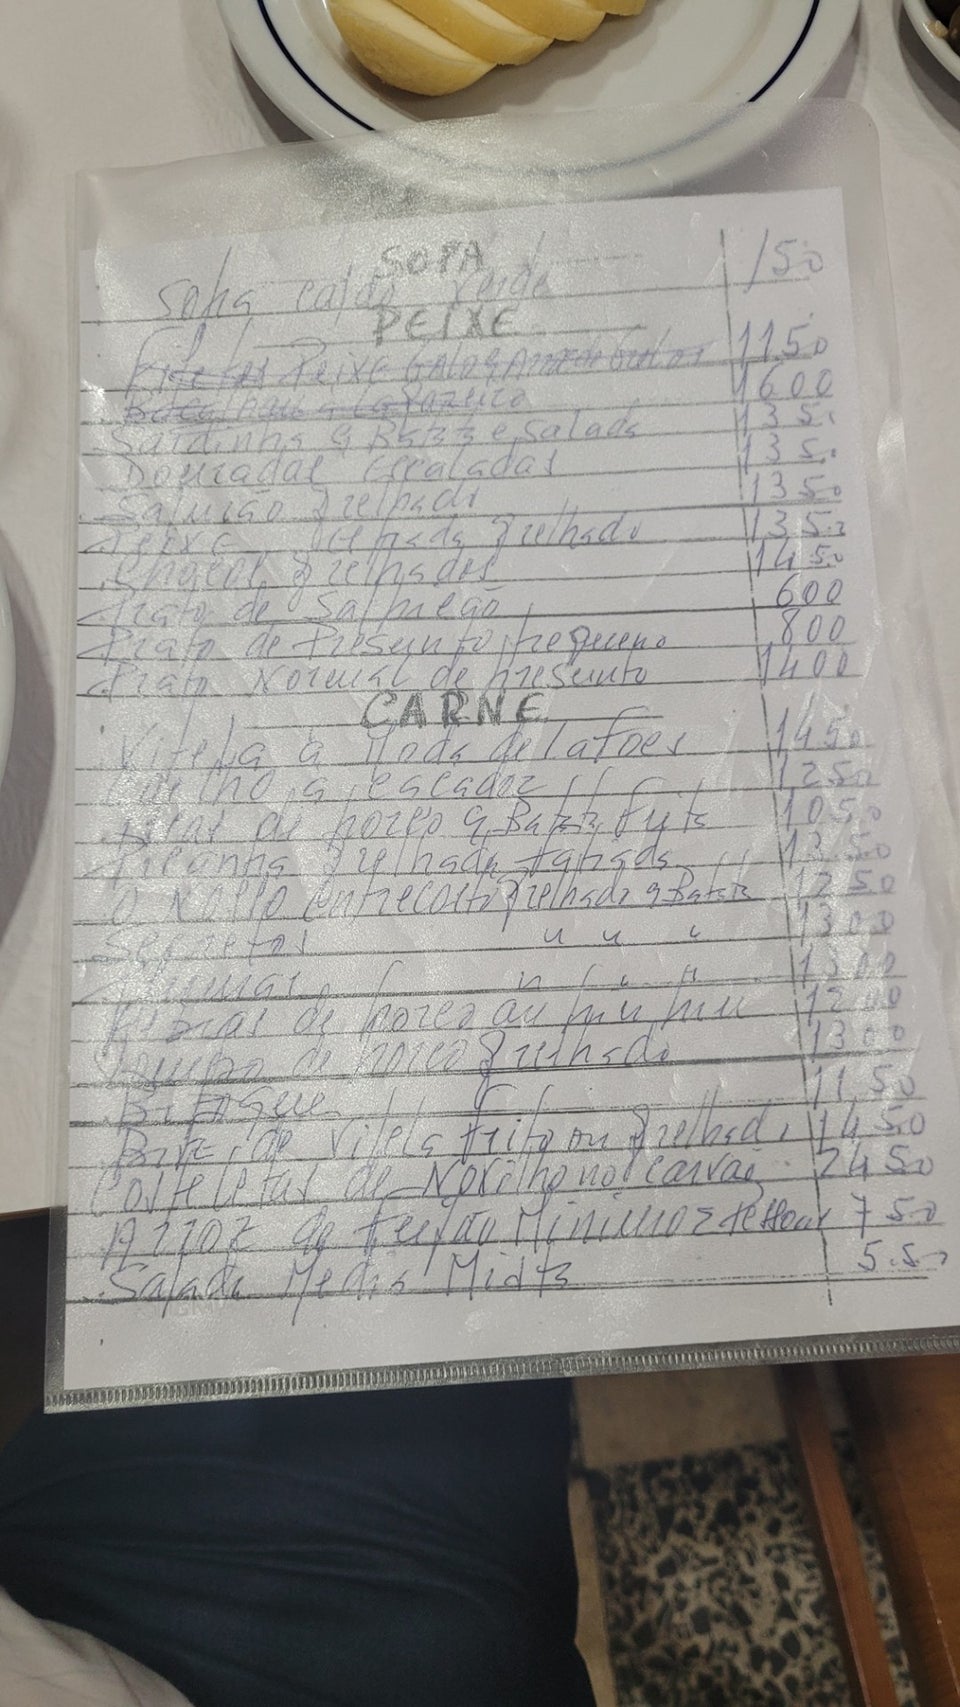 SOPA
Sopa caldo verde 150
PEIXE
Filetes Peixe Galo 1150
Bacalhau à Lagareiro 1600
Sardinha c/ Batata e Salada 135.
Douradas Escaladas 135.
Salmão Grelhado 1350
Peixe Grelhado 1350
Grelhados 1450
Prato de Salpicão 600
Prato de Presunto Pequeno 800
Prato Normal de presunto 1400
CARNE
Vitela à Moda de Lafões 1450
Coelho à caçador 1250
de porco c/ Batata Frita 1050
Picanha Grelhada Fatiada 1350
O Nosso Entrecosto Grelhado c/ Batata 1250
Secretos " " " 1300
Plumas " " " 1300
de porco 1200
Lombo de porco Grelhado 1300
Bitoque 1150
Bife de Vitela Frito ou Grelhado 1450
Costeletas de Novilho no Carvão 2450
Arroz de Feijão Mínimo 2 Pessoas 750
Salada Media Mista 5.50